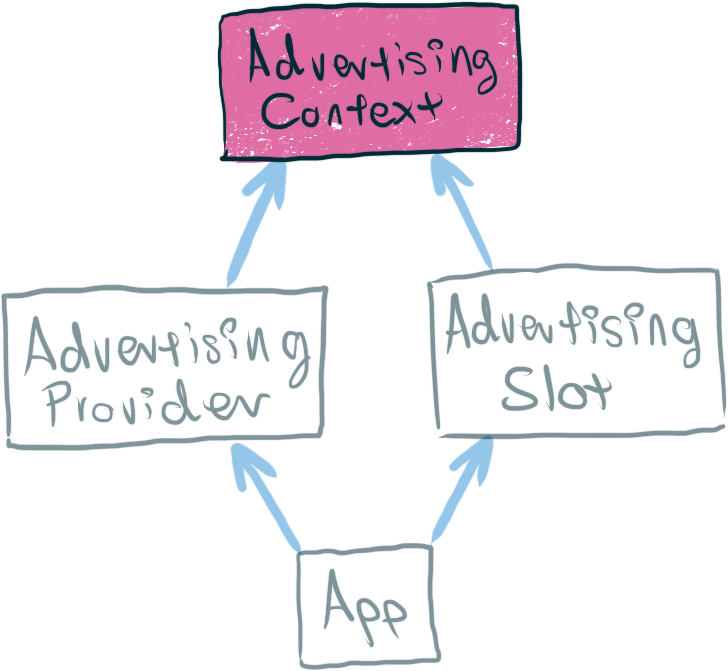 Advertising
Context
Advertising
Provider
Advertising
Slot
App